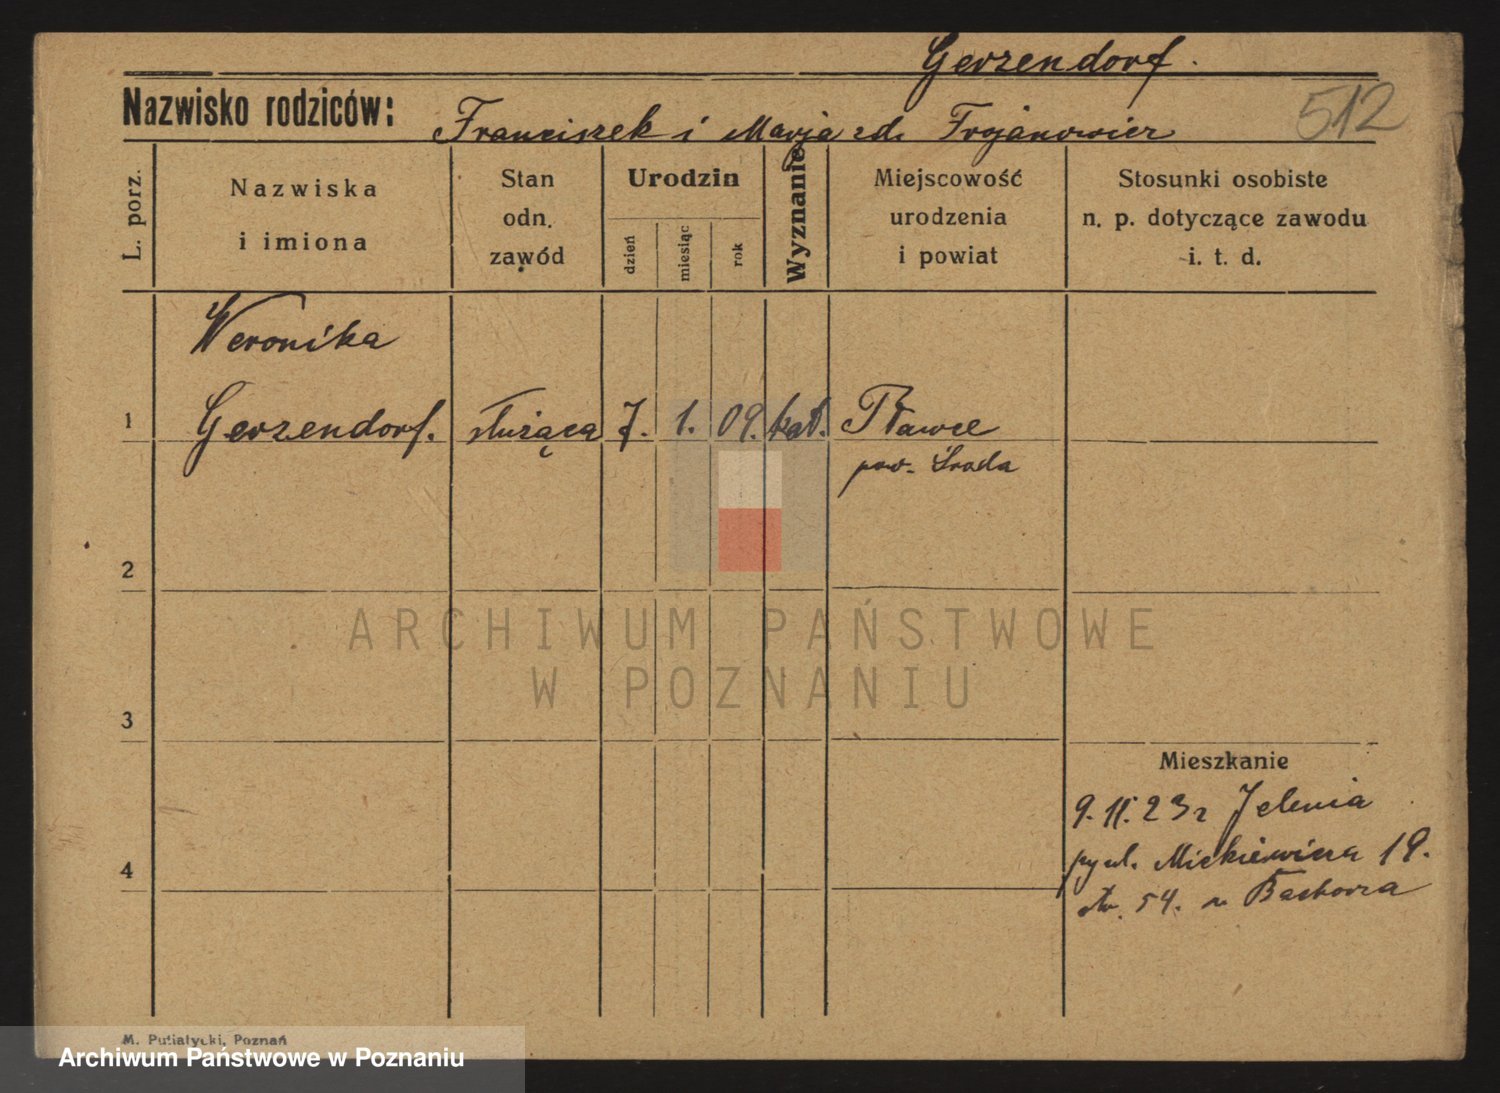 Gerzendorf.
512
Nazwisko rodziców: Franciszek i Marja zd. Trojanowicz
L. porz.
Nazwiska
i imiona
Stan
odn.
zawód
Urodzin
dzień
miesiąc
rok
Wyznanie
Miejscowość
urodzenia
i powiat
Stosunki osobiste
n. p. dotyczące zawodu
i. t. d.
Weronika
1 Gerzendorf. służąca 7. 1. 09. kat. Pławce
pow. Środa
2
ARCHIWUM PAŃSTWOWE
W POZNANIU
3
Mieszkanie
9. 11. 23 r Jelenia
ul. Mickiewicza 19.
4
54. Bachorza
M. Putiatycki, Poznań
Archiwum Państwowe w Poznaniu